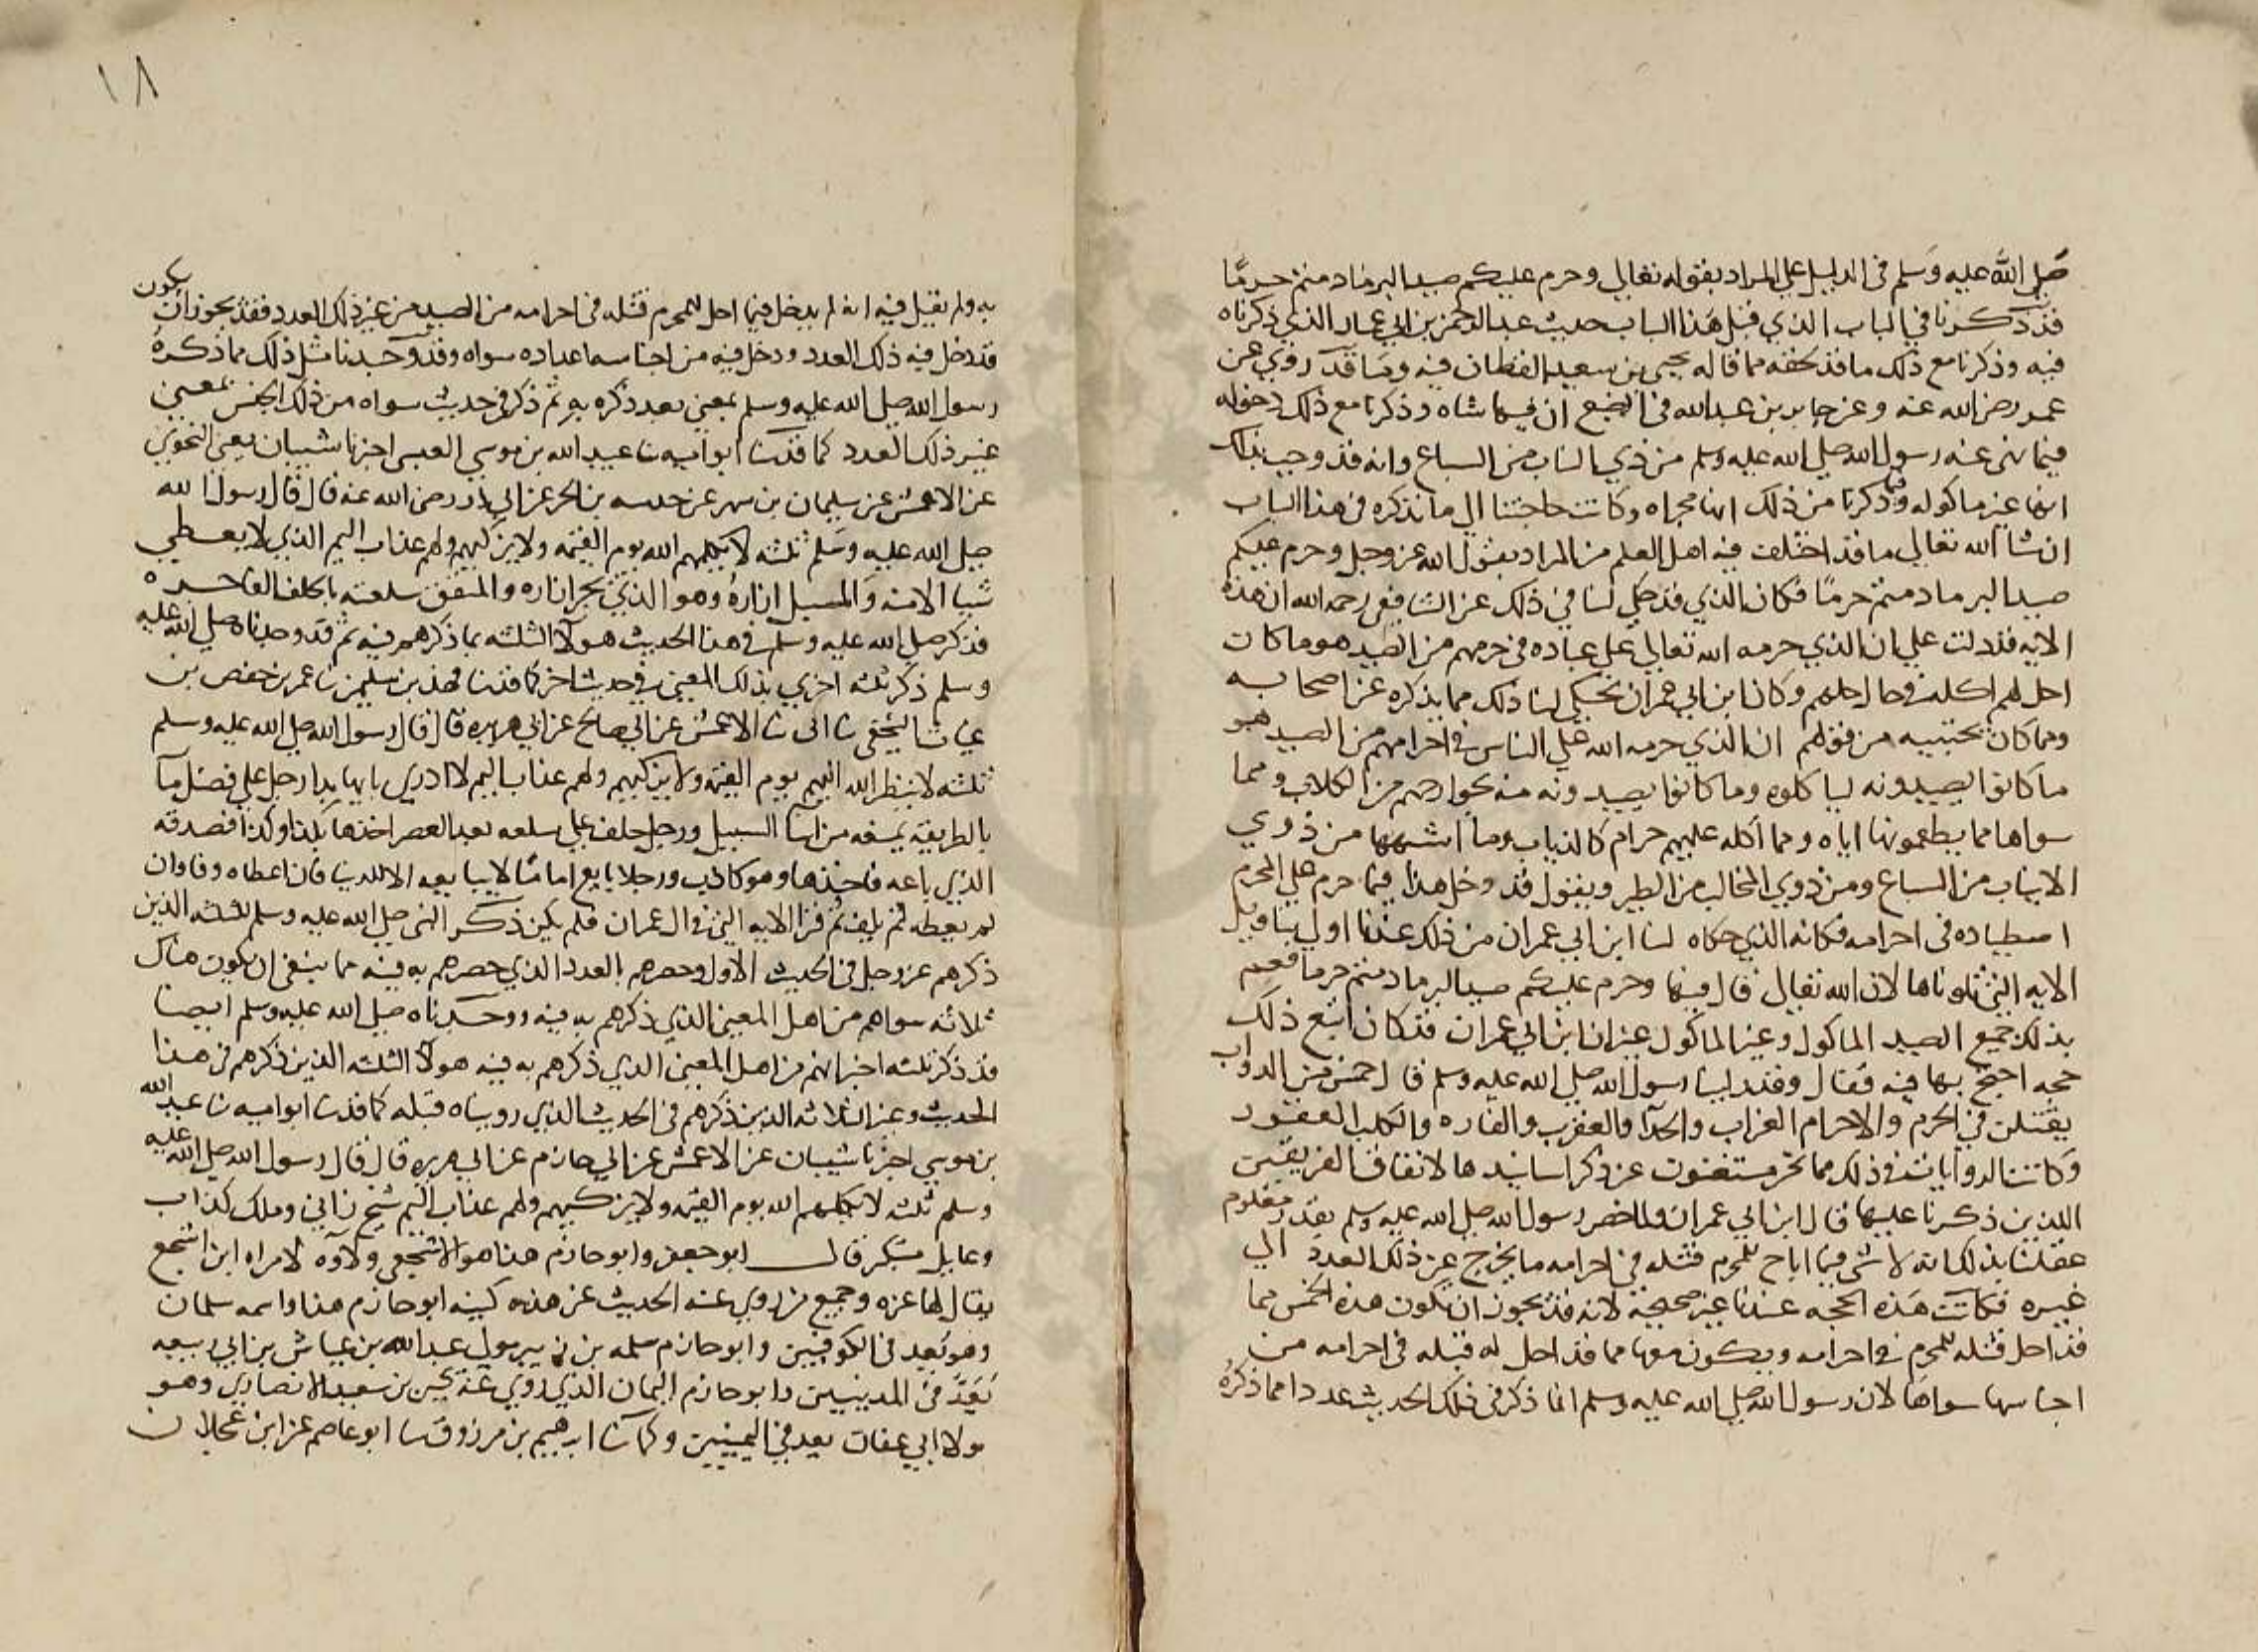 صلى الله عليه وسلم فى الدليل على المراد بقوله تعالى وحرم عليكم صيد البر ما دمتم حرما
قد ذكرنا فى الباب الذي قبل هذا الباب حديث عبد الرحمن بن ابي عمار الذي ذكرناه
فيه وذكرنا مع ذلك ما قد لحقه مما قاله يحيى بن سعيد القطان فيه وما قد روي عن
عمر رضى الله عنه وعن جابر بن عبد الله فى الضبع ان فيها شاه وذكرنا مع ذلك دخوله
فيما نهى عنه رسول الله صلى الله عليه وسلم من ذي الناب من السباع وانه قد وجب بذلك
انها غير ماكوله وذكرنا من ذلك انها مجراه وكانت حاجتنا الى ما نذكره فى هذا الباب
ان شا الله تعالى ما قد اختلف فيه اهل العلم من المراد بقول الله عز وجل وحرم عليكم
صيد البر ما دمتم حرما فكان الذي قد حكي لنا فى ذلك عن الشافعي رحمه الله ان هذه
الايه قد دلت على ان الذي حرمه الله تعالى على عباده فى حرمهم من الصيد هو ما كان
احل لهم اكله فى حال احلالهم وكان ابن ابي عمران يحكي لنا ذلك مما يذكره عن اصحابه
ومما كان يجتبيه من قولهم ان الذي حرمه الله على الناس فى احرامهم من الصيد هو
ما كانوا يصيدونه لياكلوه وما كانوا يصيدونه منه بجوارحهم من الكلاب ومما
سواها مما يطعمونها اياه ومما اكله عليهم حرام كالذياب وما اشبهها من ذوي
الانياب من السباع ومن ذوي المخالب من الطير ويقول قد دخل هذا فيما حرم على المحرم
اصطياده فى احرامه فكان الذي حكاه لنا ابن ابي عمران من ذلك عندنا اولى بتاويل
الايه التى تلوناها لان الله تعالى قال فيها وحرم عليكم صيد البر ما دمتم حرما فعم
بذلك جميع الصيد الماكول وغير الماكول غير ان ابن ابي عمران قد كان اتبع ذلك
حجه احتج بها فيه فقال وقد راينا رسول الله صلى الله عليه وسلم قال خمس من الدواب
يقتلن فى الحرم والاحرام الغراب والحدا والعقرب والفاره والكلب العقور
وكانت الروايات فى ذلك مما نحن مستغنون عن ذكر اسانيدها لاتفاق الفريقين
اللذين ذكرنا عليها قال ابن ابي عمران ولما حصر رسول الله صلى الله عليه وسلم بعدد معلوم
عقلنا بذلك انه لا شى فيما اباح للمحرم قتله فى احرامه ما يخرج عن ذلك العدد الى
غيره فكانت هذه الحجه عندنا غير صحيحة لانه قد يجوز ان تكون هذه الخمس مما
قد احل قتله للمحرم فى احرامه ويكون معها مما قد احل له قتله فى احرامه من
اجناسها سواها لان رسول الله صلى الله عليه وسلم انما ذكر فى ذلك الحديث عددا مما ذكره
١٨
به ولم يقل فيه انه لم يدخل فيما احل للمحرم قتله فى احرامه من الصيد من غير ذلك العدد فقد يجوز ان يكون
قد دخل فيه ذلك العدد ودخل فيه من اجناسه اعداده سواه وقد وجدنا مثل ذلك مما ذكره
رسول الله صلى الله عليه وسلم بمعنى بعدد ذكره به ثم ذكر فى حديث سواه من ذلك الجنس بمعنى
غير ذلك العدد كما حدثنا ابو اميه نا عبيد الله بن موسى العبسي اخبرنا شيبان يعنى النحوي
عن الاعمش عن سليمان بن مسهر عن خرشه بن الحر عن ابي ذر رضى الله عنه قال قال رسول الله
صلى الله عليه وسلم ثلثه لا يكلمهم الله يوم القيمه ولا يزكيهم ولهم عذاب اليم الذي لا يعطي
شيا الا منه والمسبل ازاره وهو الذي يجر ازاره والمنفق سلعته بالحلف الفاجره
فذكر صلى الله عليه وسلم فى هذا الحديث هولا الثلثه بما ذكرهم فيه ثم قد وجدناه صلى الله عليه
وسلم ذكر ثلثه اخرى بذلك المعنى فى حديث اخر كما حدثنا فهد بن سليمن نا عمر بن حفص بن
غياث النخعي نا ابى نا الاعمش عن ابي صالح عن ابي هريره قال قال رسول الله صلى الله عليه وسلم
ثلثه لا ينظر الله اليهم يوم القيمه ولا يزكيهم ولهم عذاب اليم لا ادري بايها بدا رجل على فضل ما
بالطريق يمنعه من ابنا السبيل ورجل حلف على سلعه بعد العصر اخذها بكذا وكذا فصدقه
الذي باعه فاخذها وهو كاذب ورجل بايع اماما لا يبايعه الا للدنيا فان اعطاه وفا وان
لم يعطه لم يف ثم قرا الايه التى فى ال عمران فلم يكن ذكر النبي صلى الله عليه وسلم الثلثه الذين
ذكرهم عز وجل فى الحديث الاول وحصرهم بالعدد الذي حصرهم به فيه مما ينفى ان يكون هناك
ثلاثه سواهم من اهل المعنى الذي ذكرهم به فيه ووجدناه صلى الله عليه وسلم ايضا
قد ذكر ثلثه اخبر انهم من اهل المعنى الذي ذكرهم به فيه هولا الثلثه الذين ذكرهم فى هذا
الحديث وغير الثلاثه الذين ذكرهم فى الحديث الذي رويناه قبله كما حدثنا ابو اميه نا عبيد الله
بن موسى اخبرنا شيبان عن الاعمش عن ابي حازم عن ابي هريره قال قال رسول الله صلى الله عليه
وسلم ثلثه لا يكلمهم الله يوم القيمه ولا يزكيهم ولهم عذاب اليم شيخ زاني وملك كذاب
وعايل مستكبر قال ابو جعفر وابو حازم هذا هو الاشجعي ولاوه لامراه ابن اشجع
يقال لها عزه وجميع من روي عنه الحديث عن هذه كنيه ابو حازم هذا واسمه سلمان
وهو يعد فى الكوفيين وابو حازم سلمه بن دينار مولى عبد الله بن عياش بن ابي ربيعه
يعد فى المدينيين وابو حازم التمار الذي روى عنه يحيى بن سعيد الانصاري وهو
مولا ابي غفار يعد فى اليمنيين وكما نا ابرهيم بن مرزوق نا ابو عاصم عن ابن عجلان